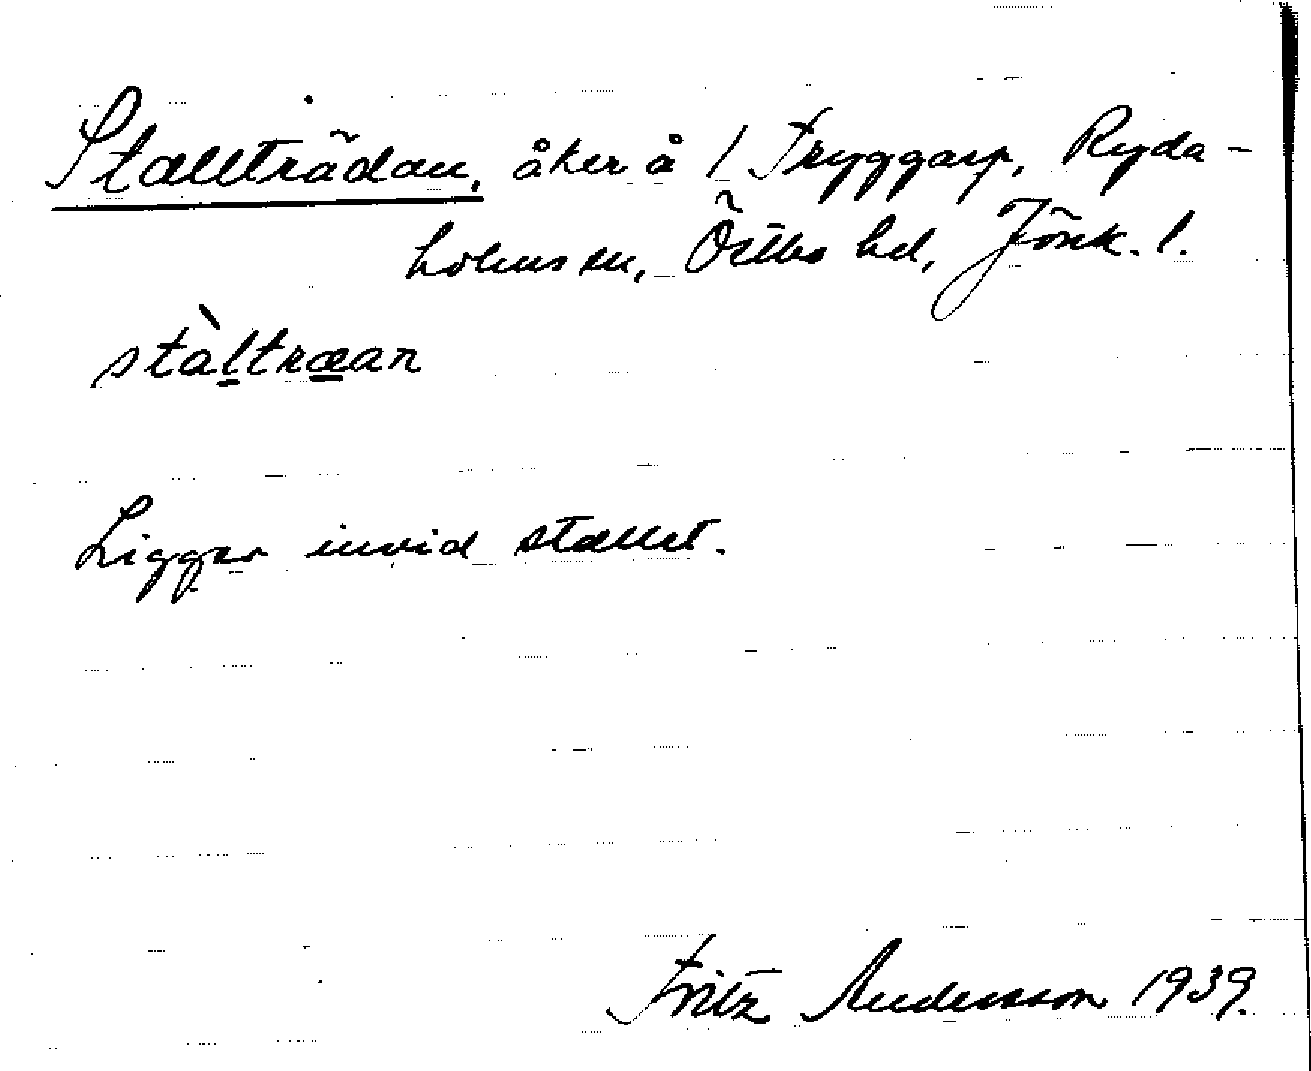 Stallträdan, åker å 1 Tryggarp, Ryda-
holms sn, Östbo hd, Jönk. l.
stàltræan
Ligger invid stallet.
Fritz Andersson 1939.